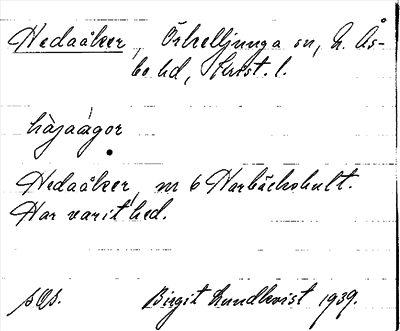 Hedaåker, Örkelljunga sn, N. Ås-
bo hd, Krist. l.
hàjaágor
Hedaåker, nr 6 Harbäckshult.
Har varit hed.
Birgit Lundkvist 1939.